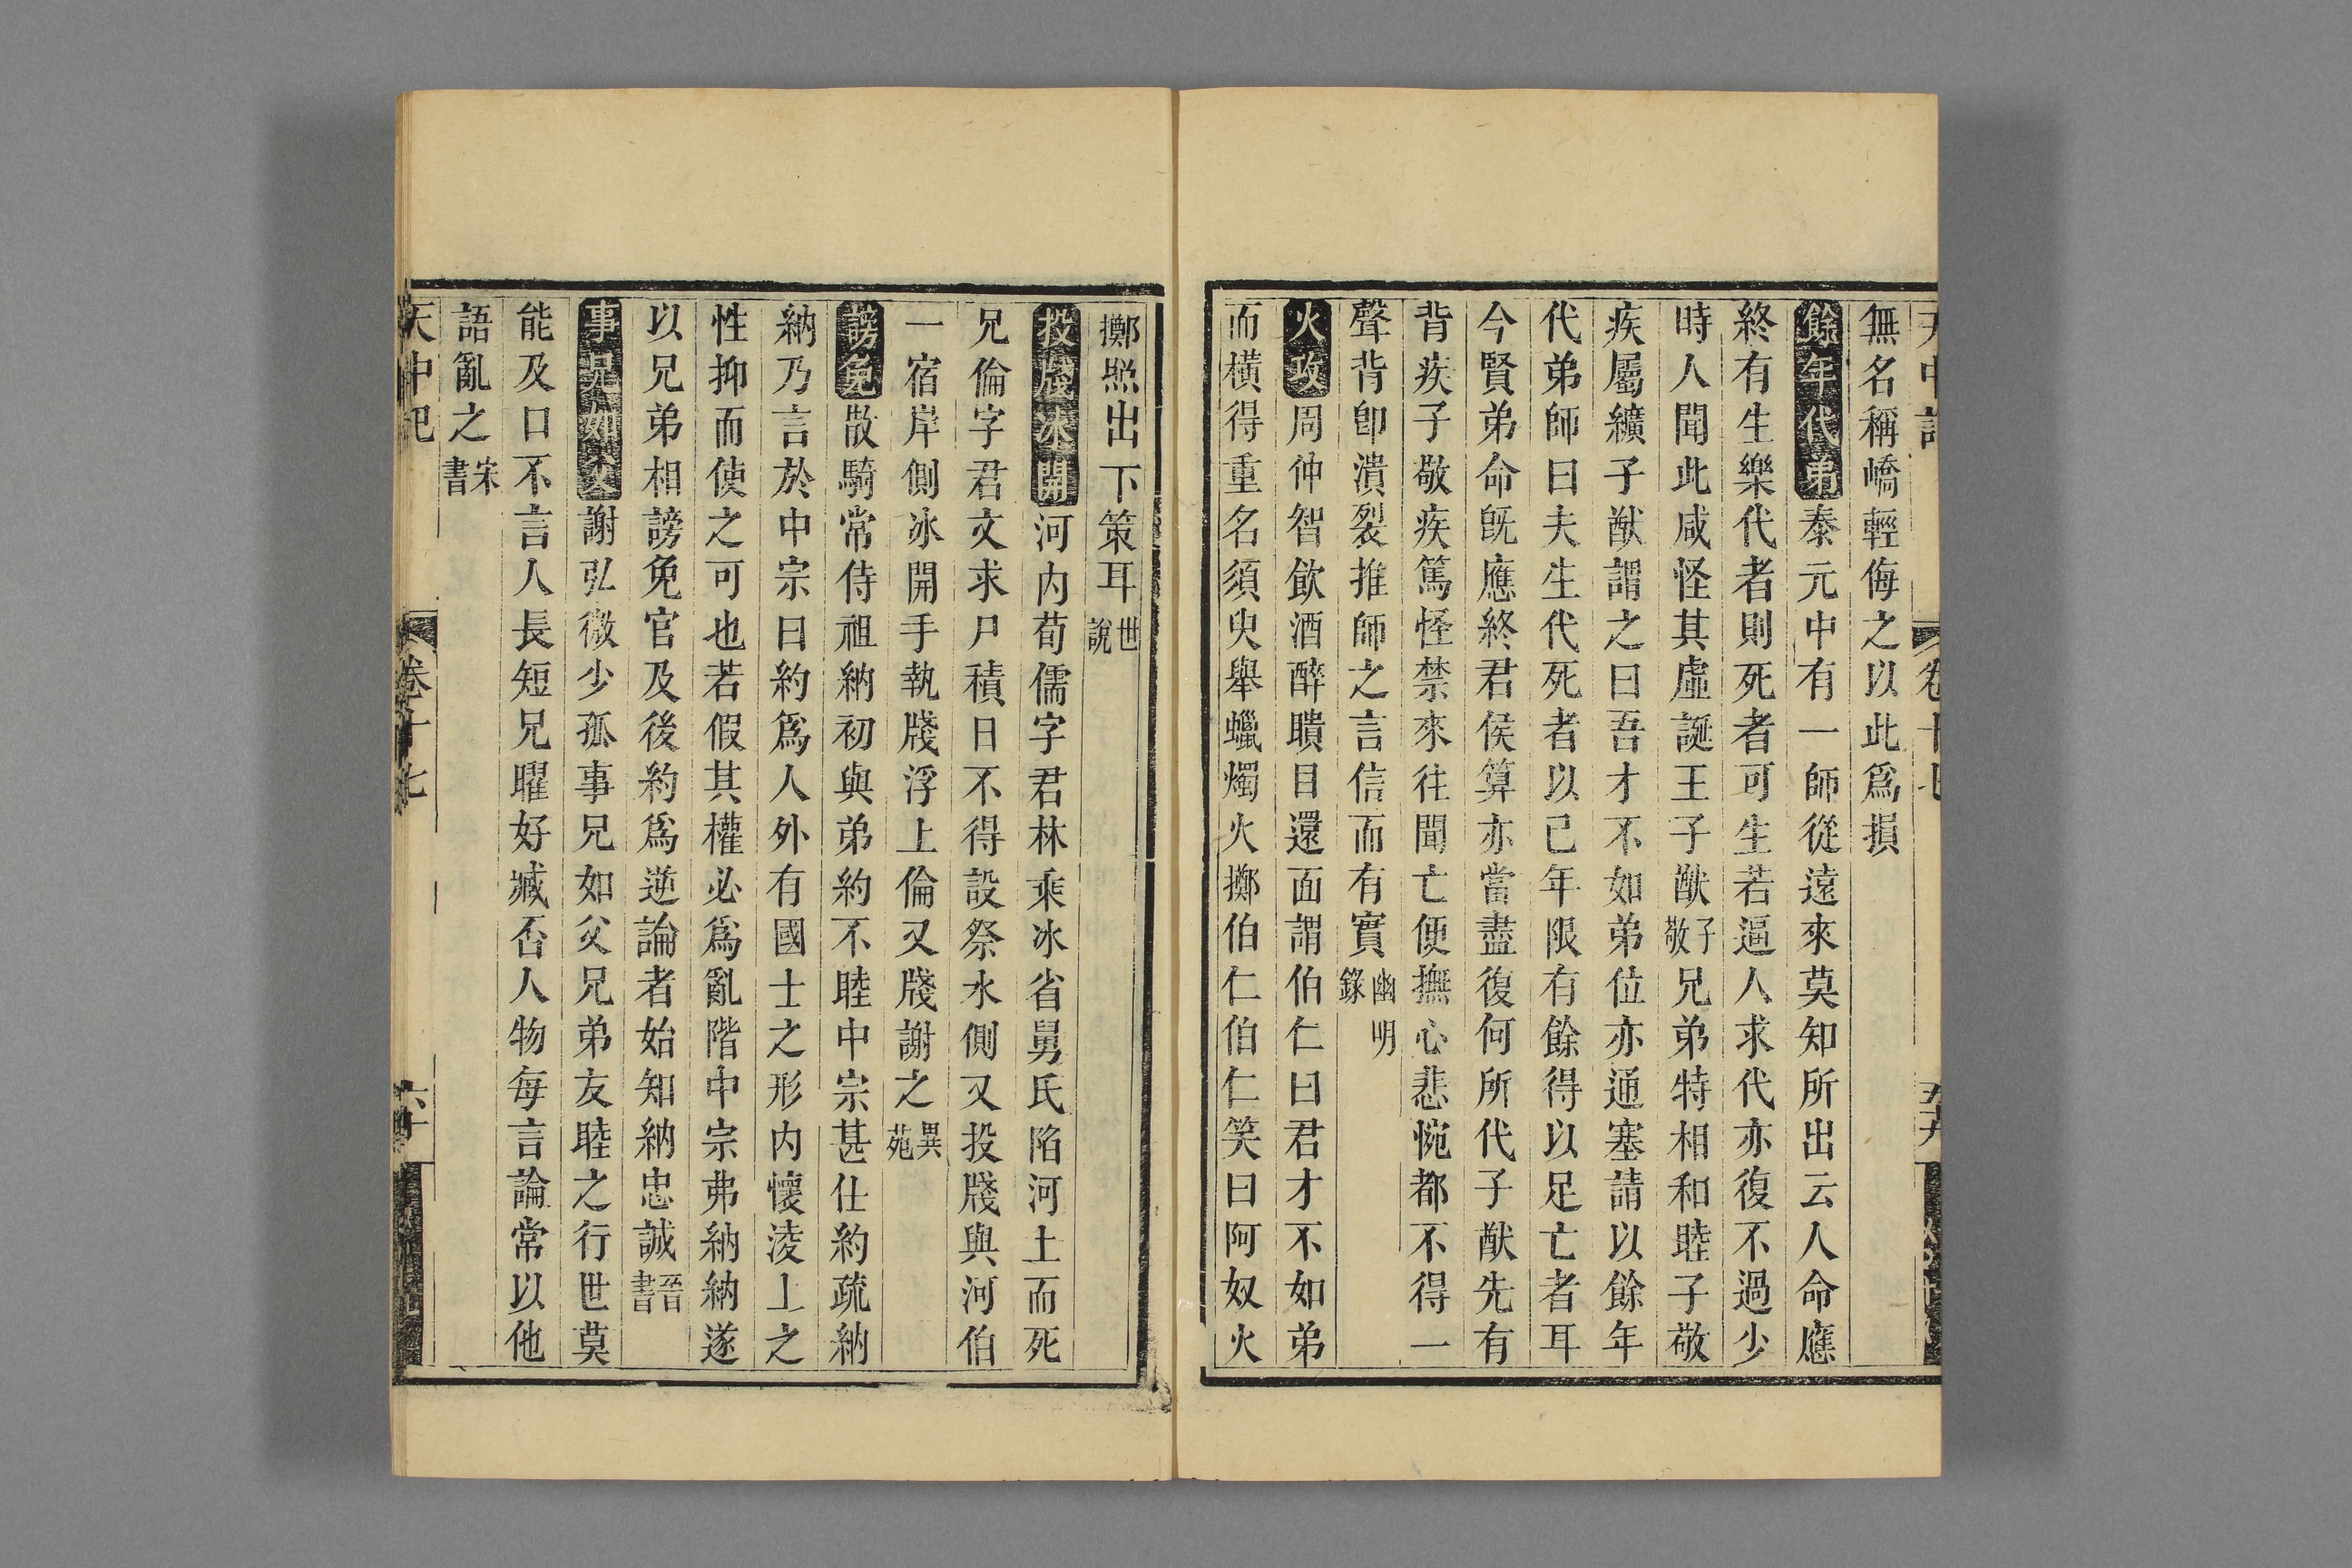 無名稱嶠輕侮之以此爲損
餘年代弟泰元中有一師從遠來莫知所出云人命應
終有生樂代者則死者可生若逼人求代亦復不過少
時人聞此咸怪其虛誕王子猷子敬兄弟特相和睦子敬
疾屬纊子猷謂之曰吾才不如弟位亦通塞請以餘年
代弟師曰夫生代死者以已年限有餘得以足亡者耳
今賢弟命既應終君侯算亦當盡復何所代子猷先有
背疾子敬疾篤怪禁來往聞亡便撫心悲惋都不得一
聲背卽潰裂推師之言信而有實幽明錄
火攻周仲智飲酒醉瞶目還面謂伯仁曰君才不如弟
而橫得重名須臾舉蠟燭火擲伯仁伯仁笑曰阿奴火
擲㷖出下策耳世說
投牋冰開河內荀儒字君林乘冰省舅氏陷河土而死
兄倫字君文求尸積日不得設祭水側又投牋與河伯
一宿岸側冰開手執牋浮上倫又牋謝之異苑
謗免散騎常侍祖納初與弟約不睦中宗甚仕約疏納
納乃言於中宗曰約爲人外有國士之形內懷淩上之
性抑而使之可也若假其權必爲亂階中宗弗納納遂
以兄弟相謗免官及後約爲逆論者始知納忠誠晉書
事兄如父謝弘微少孤事兄如父兄弟友睦之行世莫
能及口不言人長短兄曜好臧否人物每言論常以他
語亂之宋書
天中記 卷十七 六十